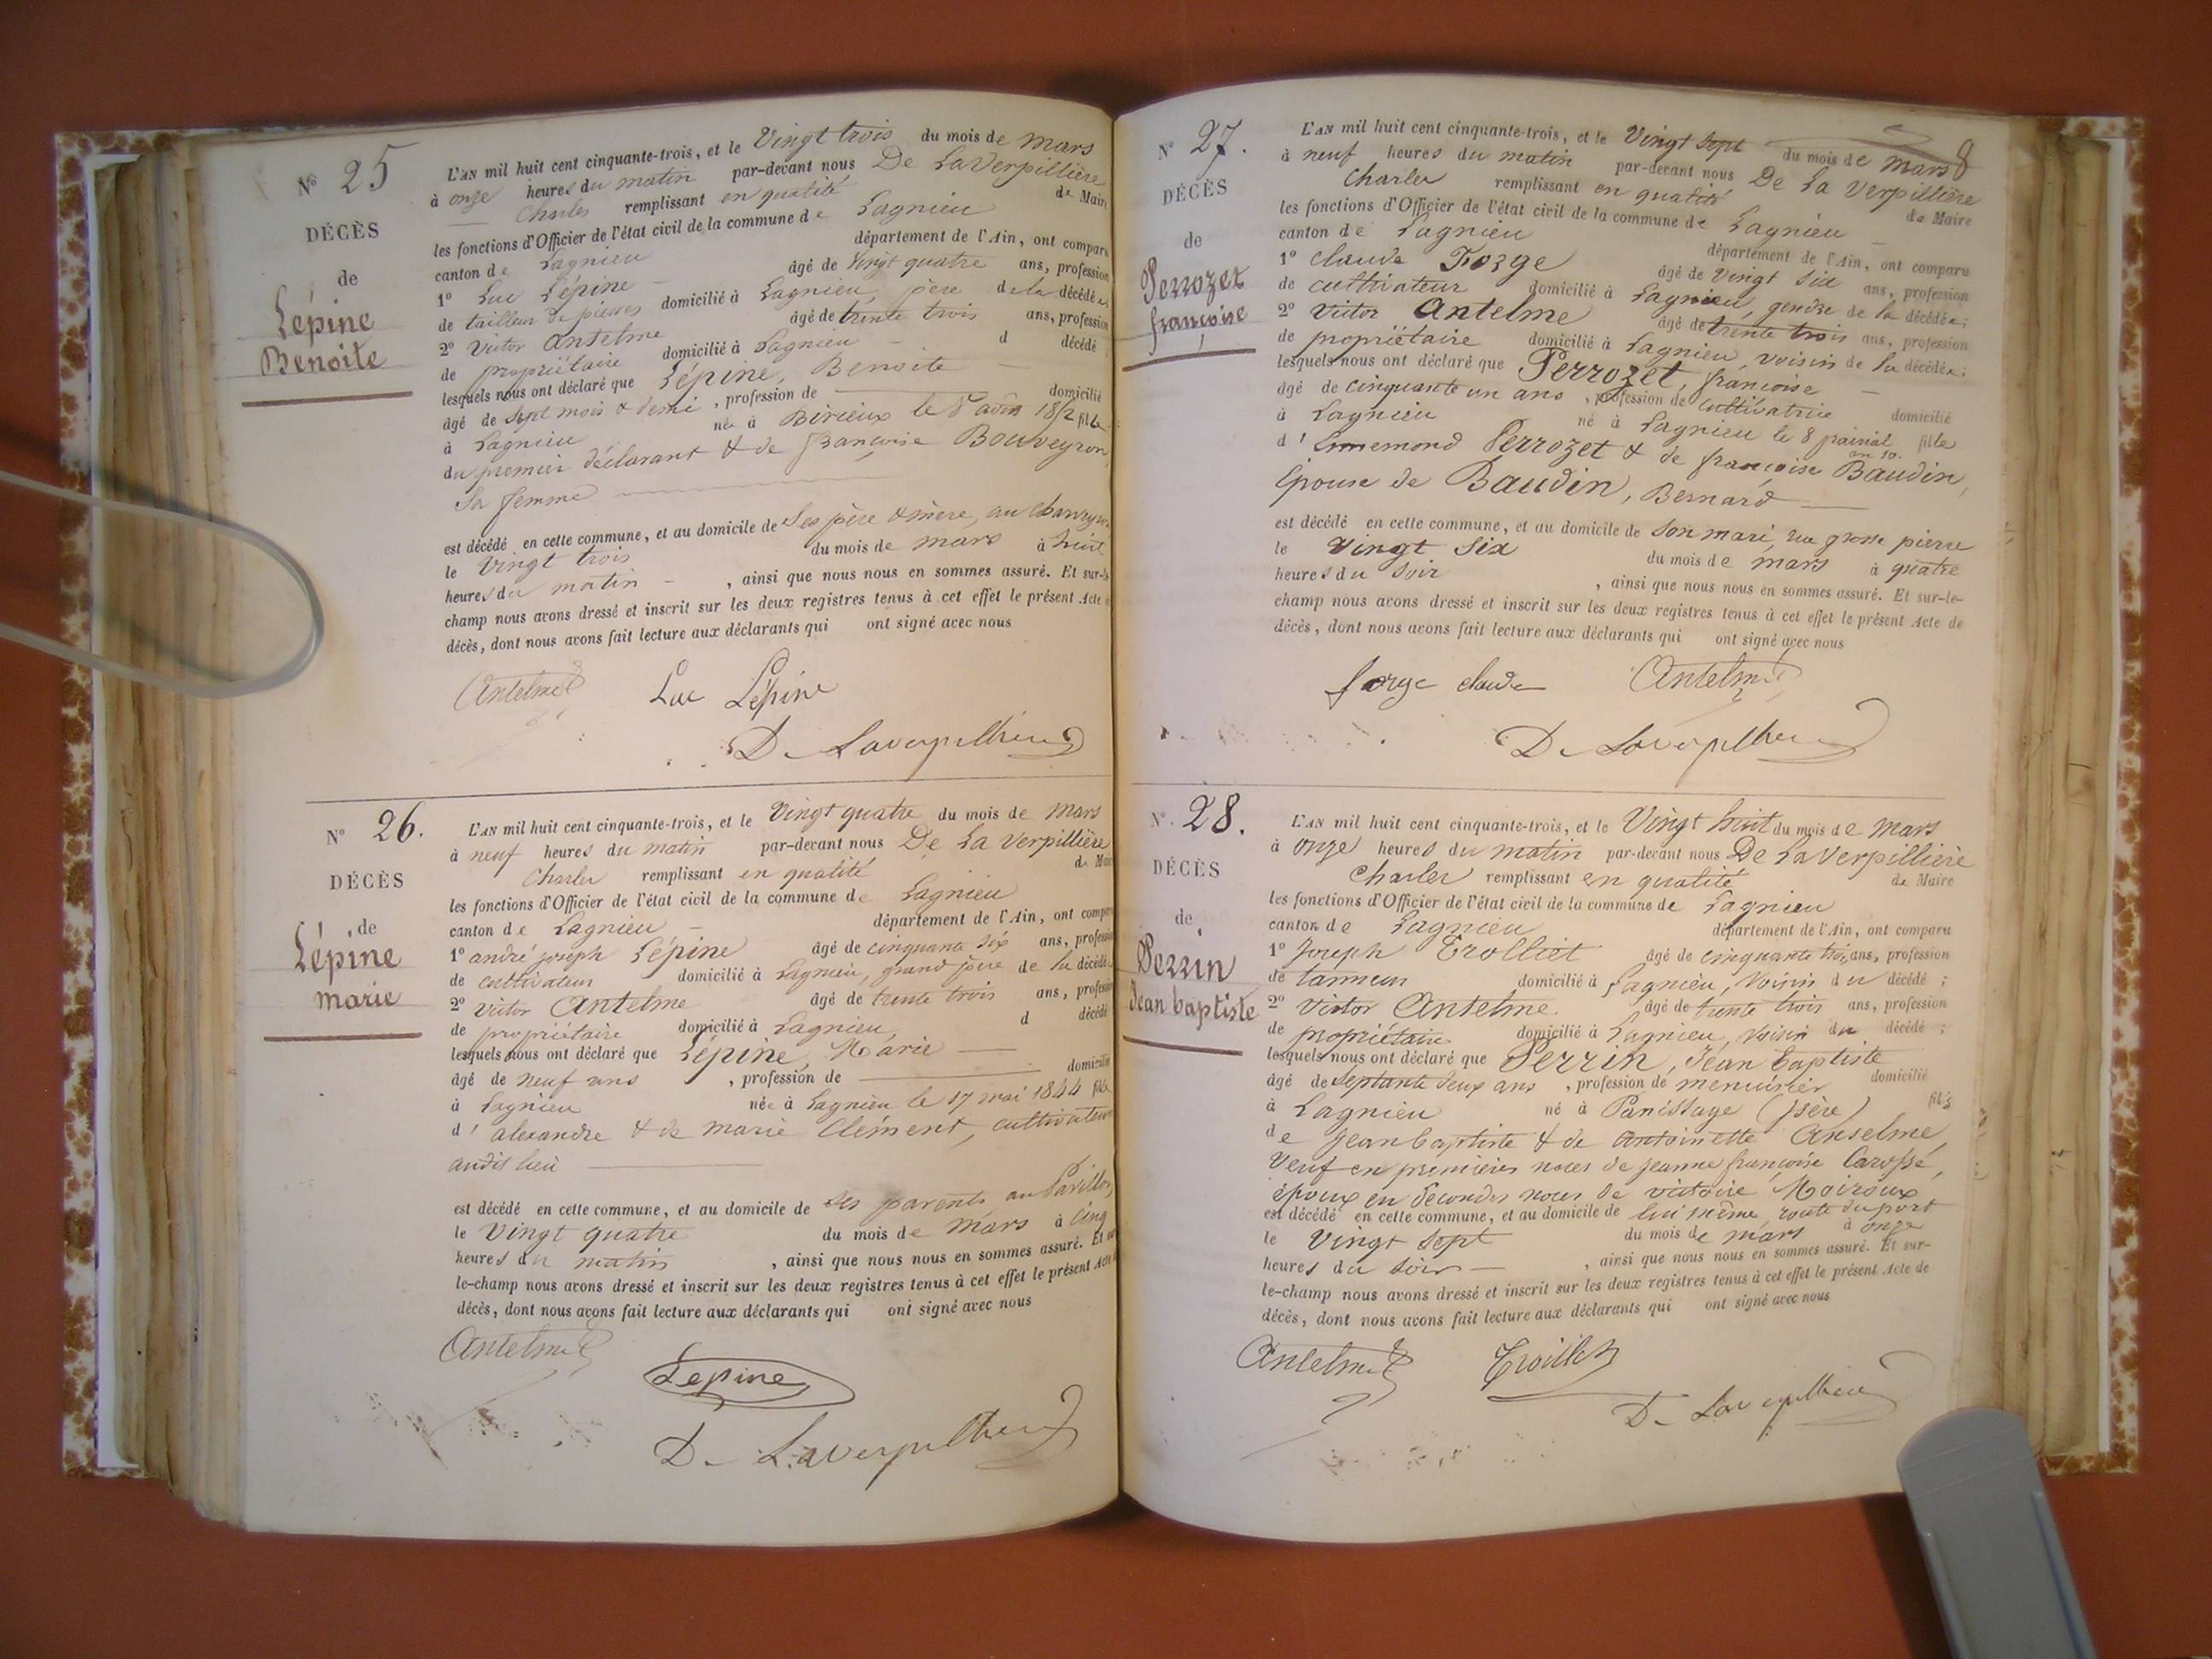 N° 25
DÉCÈS
de
Lépine
Benoite
L'AN mil huit cent cinquante-trois, et le Vingt trois du mois de mars
à onze heures du matin par-devant nous De LaVerpillière
Charles remplissant en qualité de Maire
les fonctions d'Officier de l'état civil de la commune de Lagnieu
canton de Lagnieu département de l'Ain, ont comparu
1° Luc Lépine âgé de Vingt quatre ans, profession
de tailleur de pierres domicilié à Lagnieu, père de la décédée
2° Victor Antelme âgé de trente trois ans, profession
de propriétaire domicilié à Lagnieu d décédé
lesquels nous ont déclaré que Lépine, Benoite
âgé de Sept mois & demi, profession de domicilié
à Lagnieu née à Birieux le 8 août 1852 fille
du premier déclarant & de françoise Bouveyron
Sa femme
est décédé en cette commune, et au domicile de Ses père & mère, au
le Vingt trois du mois de mars à huit
heures du matin, ainsi que nous nous en sommes assuré. Et sur-le
champ nous avons dressé et inscrit sur les deux registres tenus à cet effet le présent Acte
décès, dont nous avons fait lecture aux déclarants qui ont signé avec nous
Antelme Luc Lépine
D. Laverpilliere
N° 26.
DÉCÈS
de
Lépine
marie
L'AN mil huit cent cinquante-trois, et le Vingt quatre du mois de mars
à neuf heures du matin par-devant nous De La Verpillière
Charles remplissant en qualité de Maire
les fonctions d'Officier de l'état civil de la commune de Lagnieu
canton de Lagnieu département de l'Ain, ont comparu
1° andré joseph Lépine âgé de cinquante six ans, profession
de cultivateur domicilié à Lagnieu, grand père de la décédé
2° Victor Antelme âgé de trente trois ans, profession
de propriétaire domicilié à Lagnieu, d décédé
lesquels nous ont déclaré que Lépine, Marie
âgé de neuf ans, profession de domicilié
à Lagnieu née à Lagnieu le 17 mai 1844 fille
d'alexandre & de marie Clément, cultivateurs
audit lieu
est décédé en cette commune, et au domicile de ses parents, au Pavillon,
le Vingt quatre du mois de mars à cinq
heures du matin, ainsi que nous nous en sommes assuré. Et sur
le-champ nous avons dressé et inscrit sur les deux registres tenus à cet effet le présent Acte
décès, dont nous avons fait lecture aux déclarants qui ont signé avec nous
Antelme
Lepine
D. Laverpilliere
8
N° 27.
DÉCÈS
de
Perrozet
françoise
L'AN mil huit cent cinquante-trois, et le Vingt Sept du mois de mars
à neuf heures du matin par-devant nous De La Verpillière
Charles remplissant en qualité de Maire
les fonctions d'Officier de l'état civil de la commune de Lagnieu
canton de Lagnieu département de l'Ain, ont comparu
1° Claude Forge âgé de Vingt Six ans, profession
de cultivateur domicilié à Lagnieu, gendre de la décédée;
2° Victor Antelme âgé de trente trois ans, profession
de propriétaire domicilié à Lagnieu, voisin de la décédée;
lesquels nous ont déclaré que Perrozet, françoise
âgé de cinquante un ans, profession de cultivatrice domicilié
à Lagnieu né à Lagnieu le 8 prairial an 10. fille
d'Ennemond Perrozet & de françoise Baudin,
Epouse de Baudin, Bernard
est décédé en cette commune, et au domicile de Son mari, rue grosse pierre
le Vingt Six du mois de mars à quatre
heures du Soir, ainsi que nous nous en sommes assuré. Et sur-le-
champ nous avons dressé et inscrit sur les deux registres tenus à cet effet le présent Acte de
décès, dont nous avons fait lecture aux déclarants qui ont signé avec nous
forge claude Antelme
D. Laverpilliere
N°. 28.
DÉCÈS
de
Perrin
Jean baptiste
L'AN mil huit cent cinquante-trois, et le Vingt huit du mois de mars
à onze heures du matin par-devant nous De LaVerpillière
Charles remplissant en qualité de Maire
les fonctions d'Officier de l'état civil de la commune de Lagnieu
canton de Lagnieu département de l'Ain, ont comparu
1° Joseph Trolliet âgé de cinquante trois, ans, profession
de tanneur domicilié à Lagnieu, Voisin du décédé;
2° Victor Antelme. âgé de trente trois ans, profession
de propriétaire domicilié à Lagnieu, Voisin du décédé;
lesquels nous ont déclaré que Perrin, Jean baptiste
âgé de Septante deux ans, profession de menuisier domicilié
à Lagnieu né à Panissage (Isère) fils
de Jean baptiste & de Antoinette Anselme,
Veuf en premières noces de jeanne françoise
époux en Secondes noces de victoire Moiroux
est décédé en cette commune, et au domicile de lui même, route du port
le Vingt Sept du mois de mars à onze
heures du Soir, ainsi que nous nous en sommes assuré. Et sur-
le-champ nous avons dressé et inscrit sur les deux registres tenus à cet effet le présent Acte de
décès, dont nous avons fait lecture aux déclarants qui ont signé avec nous
Antelme Trolliet
D. Laverpilliere